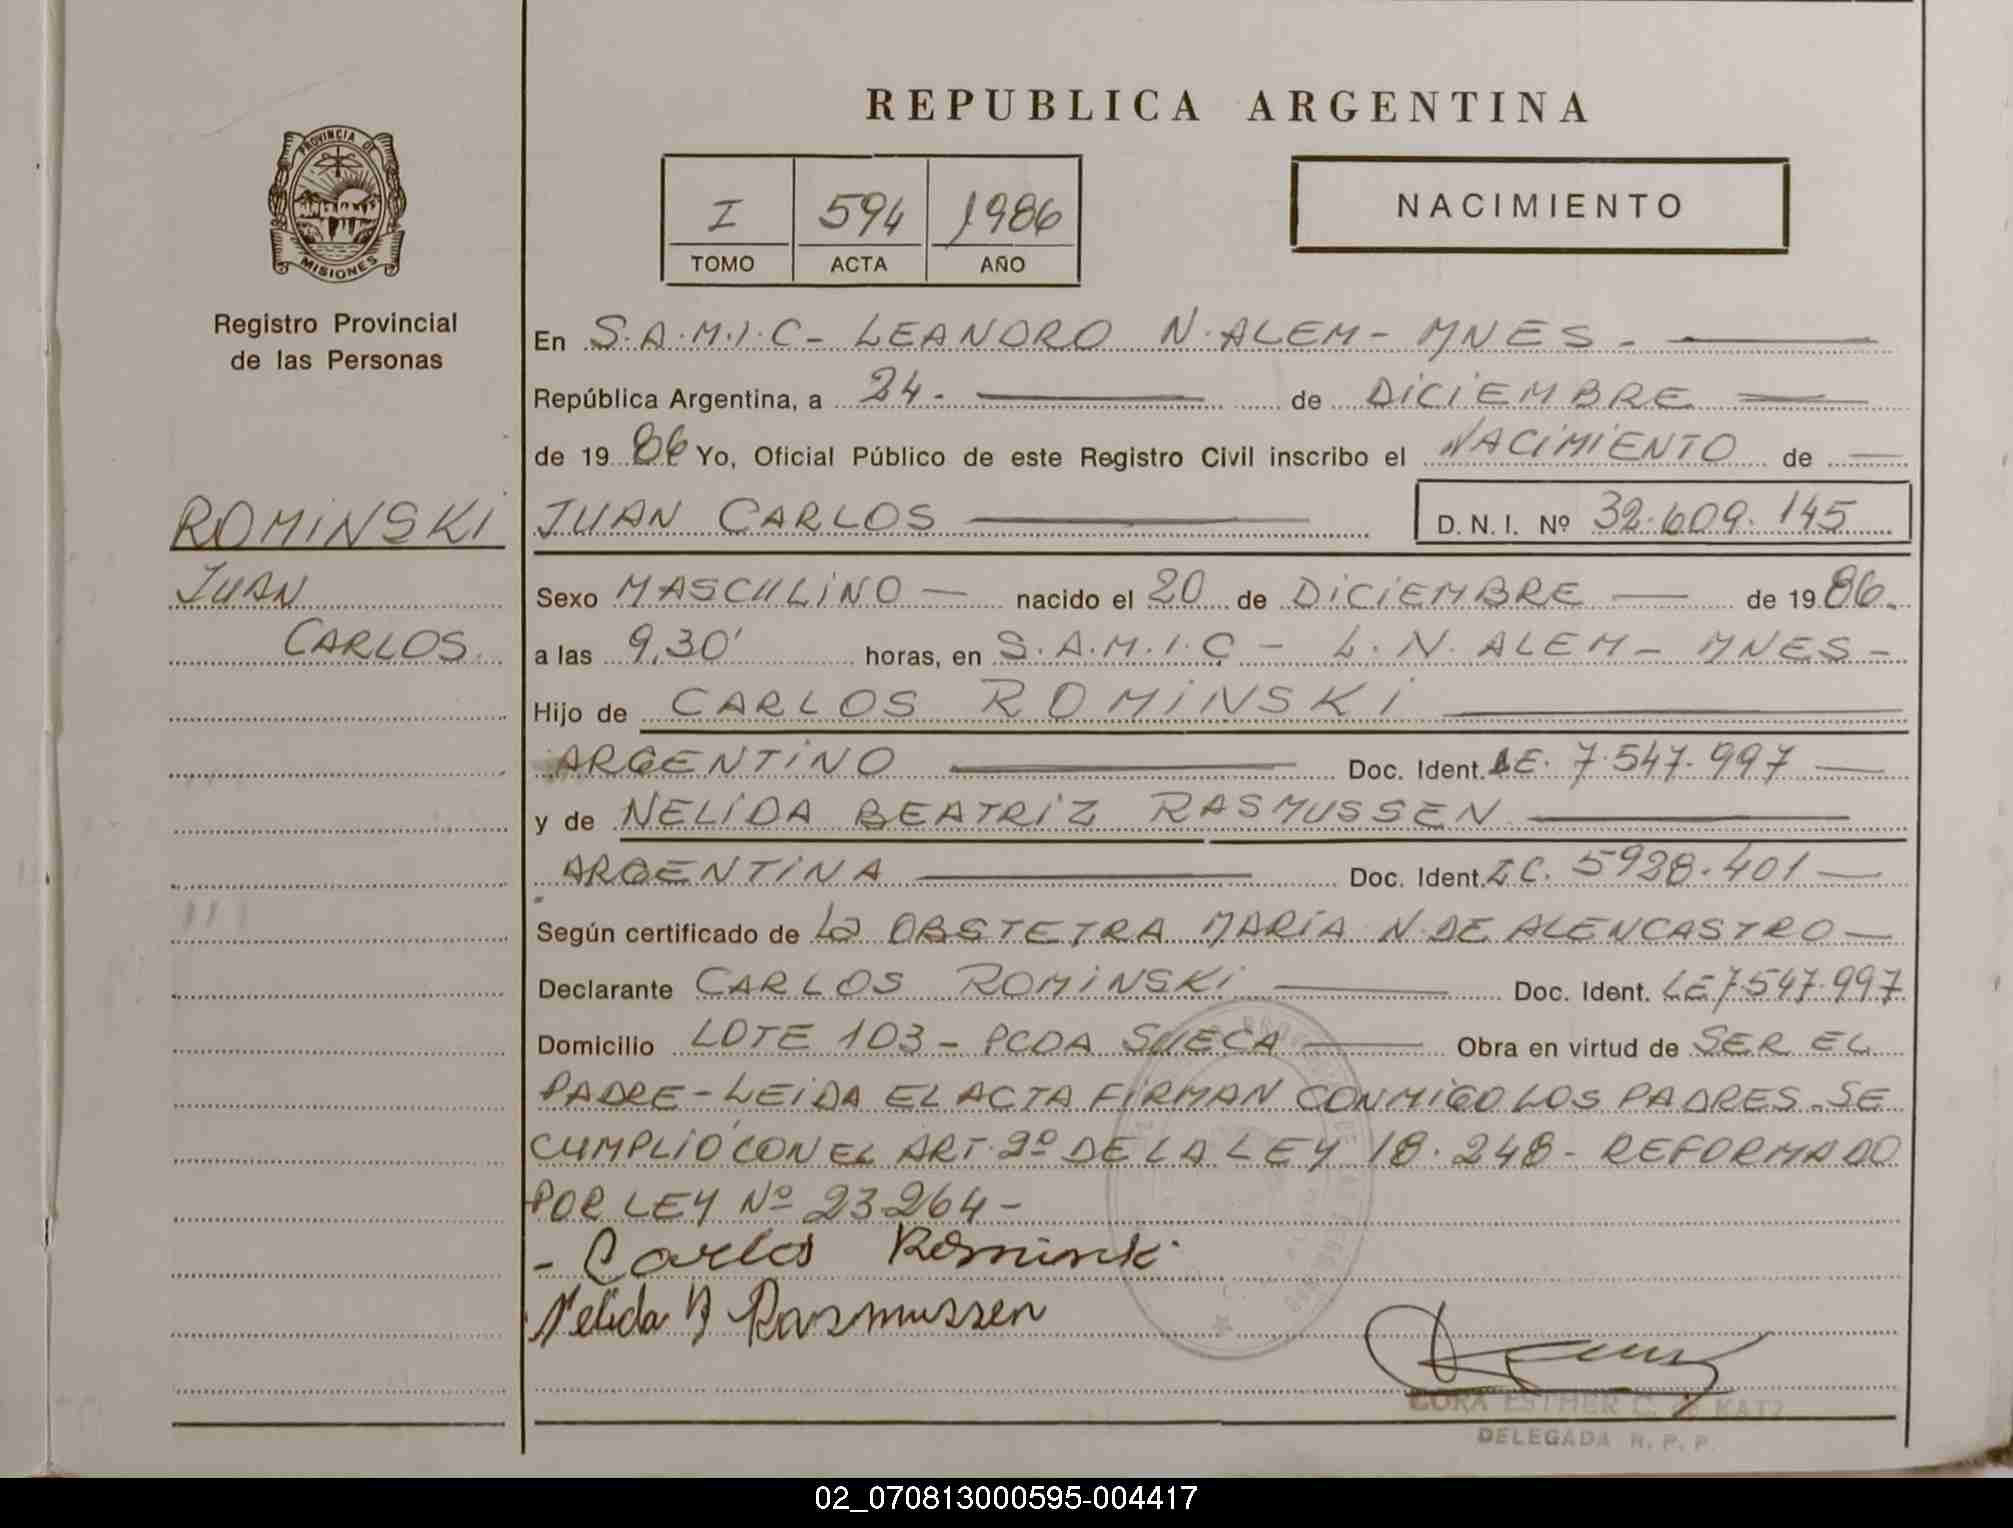 REPUBLICA ARGENTINA
PROVINCIA DE
MISIONES
Registro Provincial
de las Personas
I 594 1986
TOMO ACTA AÑO
NACIMIENTO
ROMINSKI
JUAN
CARLOS
En S.A.M.I.C- LEANDRO N. ALEM- MNES-
República Argentina, a 24- de DICIEMBRE
de 1986 Yo, Oficial Público de este Registro Civil inscribo el NACIMIENTO de
JUAN CARLOS D. N. I. Nº 32.609.145
Sexo MASCULINO nacido el 20 de DICIEMBRE de 1986.
a las 9,30' horas, en S.A.M.I.C - L. N. ALEM - MNES-
Hijo de CARLOS ROMINSKI
ARGENTINO Doc. Ident. LE. 7.547.997
y de NELIDA BEATRIZ RASMUSSEN
ARGENTINA Doc. Ident. LC. 5928.401
Según certificado de La OBSTETRA MARIA N. DE ALENCASTRO
Declarante CARLOS ROMINSKI Doc. Ident. LE 7.547.997
Domicilio LOTE 103 - PCDA SUECA Obra en virtud de SER EL
PADRE - LEIDA EL ACTA FIRMAN CONMIGO LOS PADRES. SE
CUMPLIO CON EL ART. 2º DE LA LEY 18.248 - REFORMADO
POR LEY Nº 23264 -
- Carlos Rominski
Nelida B Rasmussen
ESTHER C. de KATZ
DELEGADA R. P. P.
02_070813000595-004417